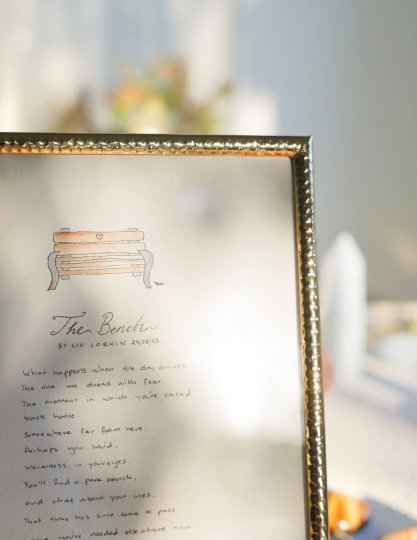 The Bench
BY LIV LORKIN 24/08/25
What happens when the day arrives
The one we dread with fear.
The moment in which you're called
back home.
Somewhere far from here.
Perhaps you said,
warmness in your eyes.
You'll find a park bench,
and chat about your lives,
That time has since come to pass,
you're needed elsewhere now.